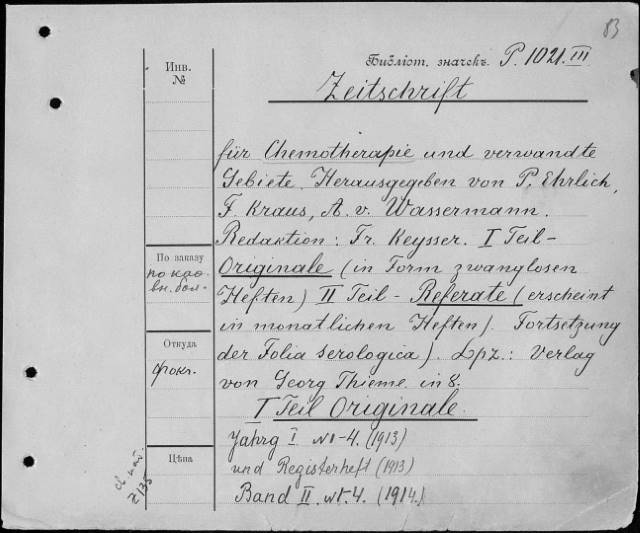 83
Библіот. значекъ P. 1021.III
Zeitschrift
für Chemotherapie und verwandte
Gebiete. Herausgegeben von P. Ehrlich,
F. Kraus, A. v. Wassermann.
Redaktion: Fr. Keysser. I Teil-
Originale (in Form zwanglosen
Heften) II Teil - Referate (erscheint
in monatlichen Heften). Fortsetzung
der Folia serologica). Lpz.: Verlag
von Georg Thieme. in 8.
I Teil Originale.
Jahrg I. №1-4. (1913)
und Registerheft (1913)
Band II. №1. 4. (1914.)
Инв.
№
По заказу
Откуда
Цѣна